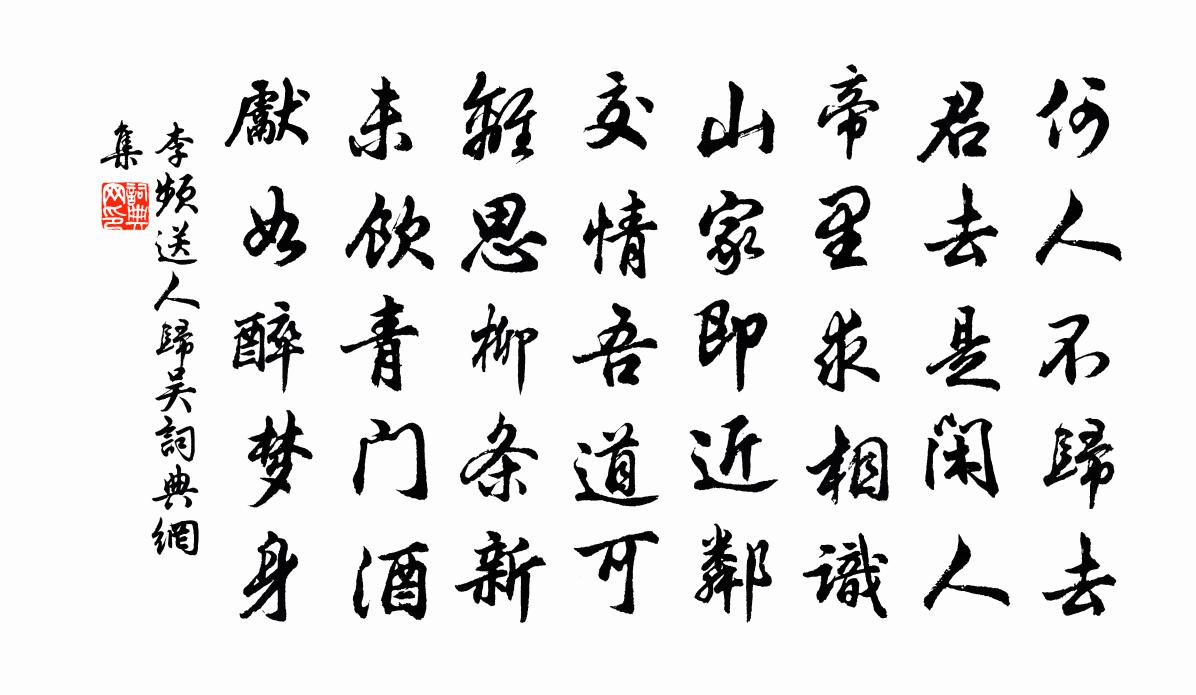 何人不歸去
君去是闲人
帝里求相識
山家即近鄰
交情吾道可
離思柳条新
未飲青门酒
獻如醉梦身
李頻送人歸吴詞典網
集
詞典网印